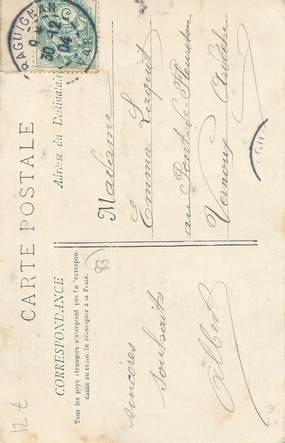 CARTE POSTALE
CORRESPONDANCE
Tous les pays étrangers n'acceptent pas la correspon-
dance au recto. Se renseigner à la Poste.
Adresse du Destinataire
DRAGUIGNAN
30 -12
04
VAR
Madame
Emma
au Pont de
Vernoux Ardèche
83
sincères
souhaits
Albert
12 €